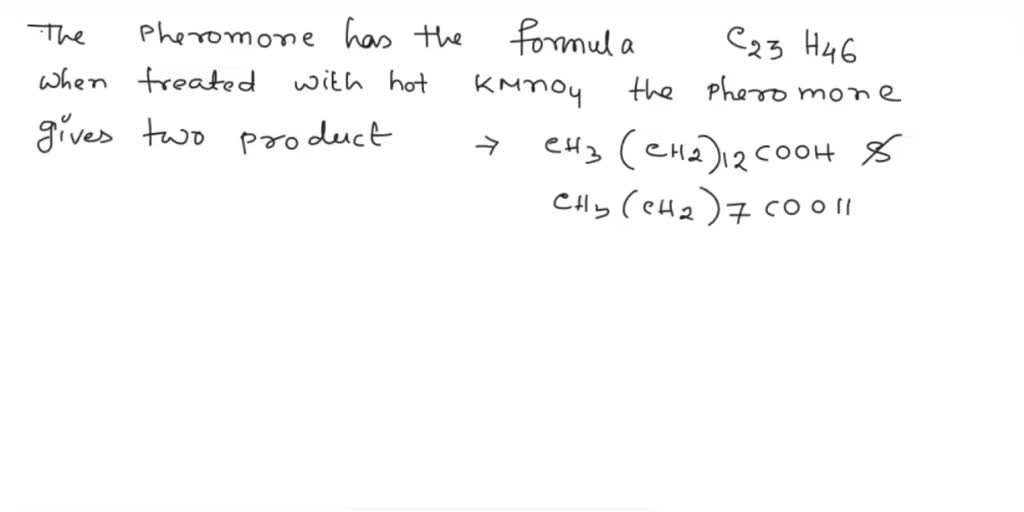 The Pheromone has the formula C23 H46
when treated with hot KMnO4 the Pheromone
gives two product → CH3 (CH2)12 COOH &
CH3 (CH2)7 COOH